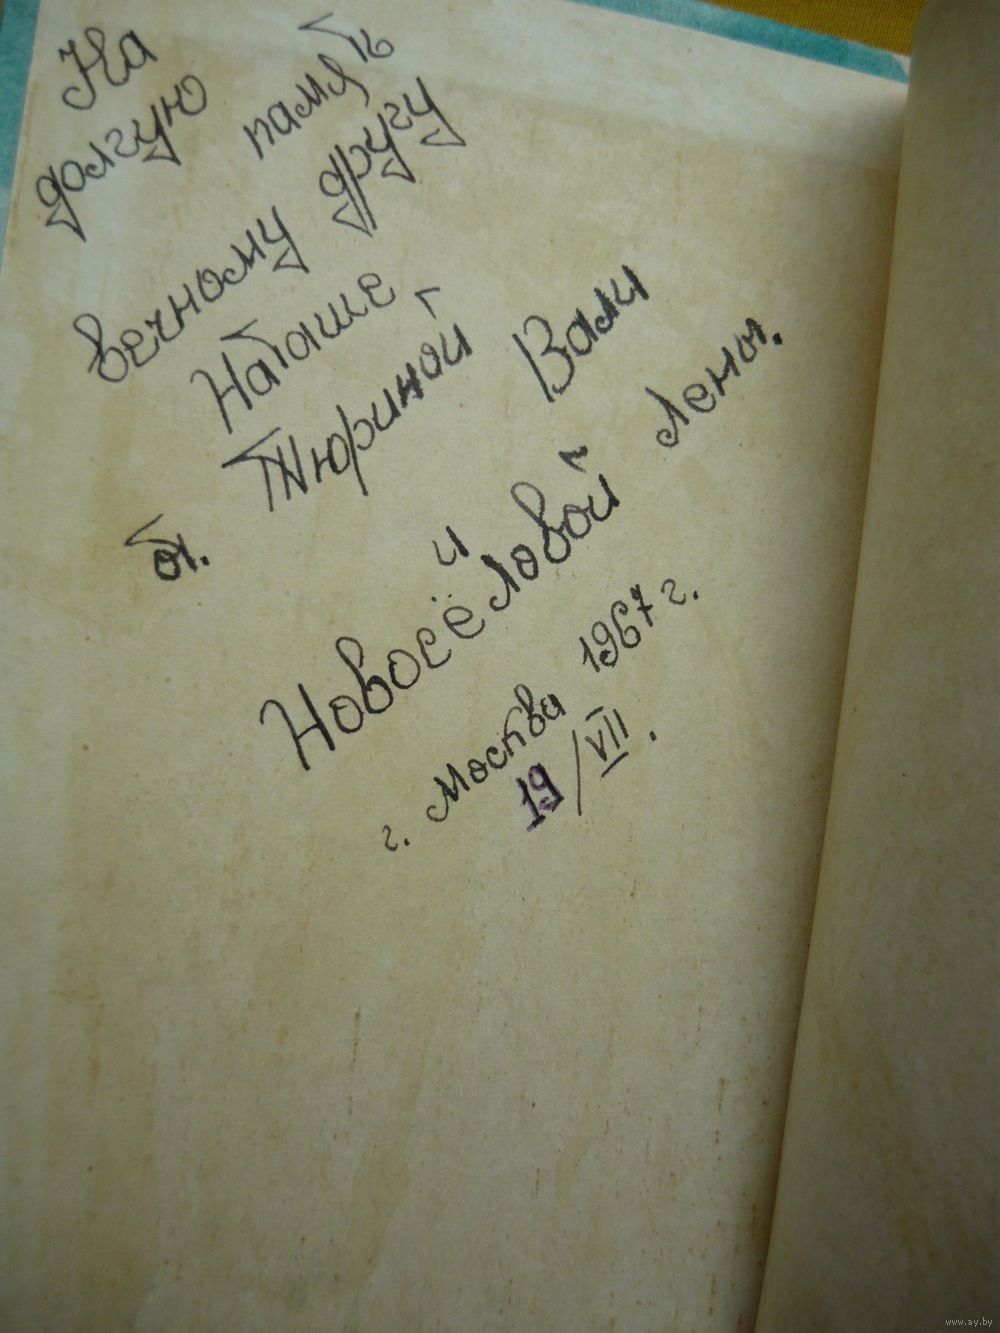 На
долгую память
вечному другу
Наташе
Тюриной
от. Вали
и
Новосёловой Лены.
г. Москва 1967 г.
19/VII.
www.ay.by